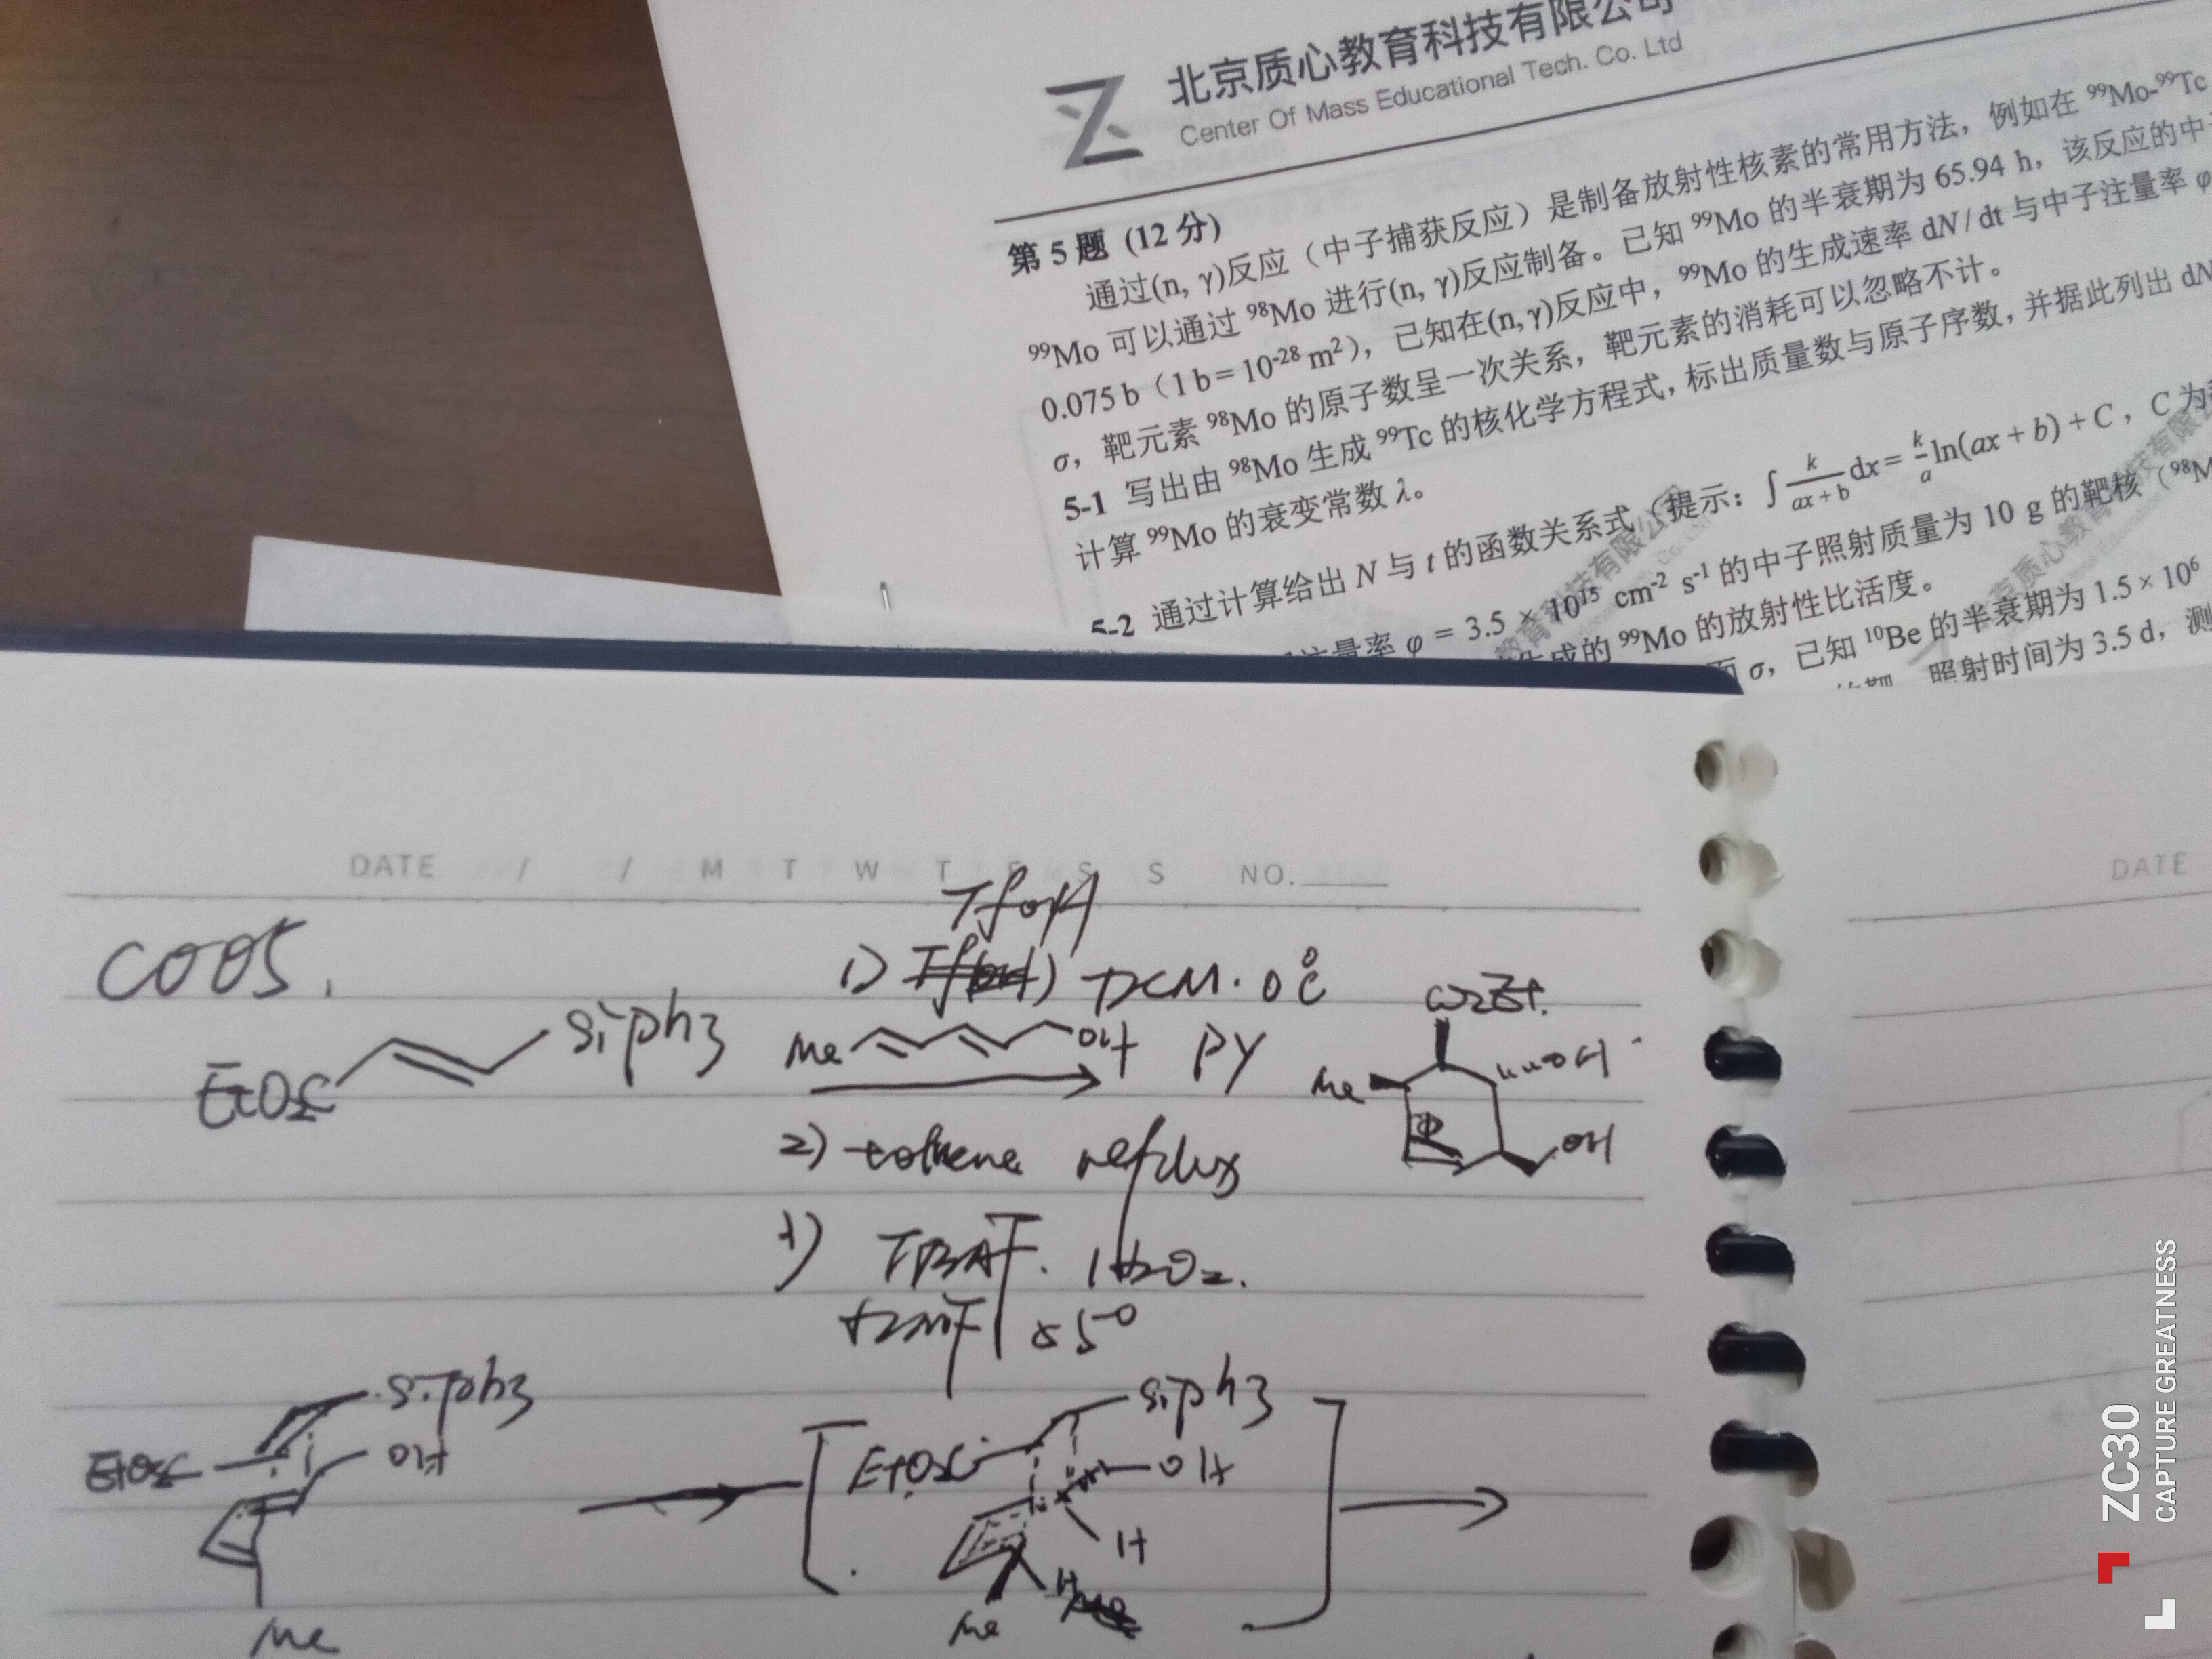 北京质心教育科技有限公司
Center Of Mass Educational Tech. Co. Ltd
第 5 题 (12 分)
通过(n, γ)反应（中子捕获反应）是制备放射性核素的常用方法，例如在 ⁹⁹Mo-⁹⁹Tc
⁹⁹Mo 可以通过 ⁹⁸Mo 进行(n, γ)反应制备。已知 ⁹⁹Mo 的半衰期为 65.94 h，该反应的中
0.075 b（1 b = 10⁻²⁸ m²），已知在(n, γ)反应中，⁹⁹Mo 的生成速率 dN / dt 与中子注量率 φ
σ，靶元素 ⁹⁸Mo 的原子数呈一次关系，靶元素的消耗可以忽略不计。
5-1 写出由 ⁹⁸Mo 生成 ⁹⁹Tc 的核化学方程式，标出质量数与原子序数，并据此列出 dN
计算 ⁹⁹Mo 的衰变常数 λ。
5-2 通过计算给出 N 与 t 的函数关系式（提示：∫ k/(ax+b) dx = k/a ln(ax + b) + C，C 为
注量率 φ = 3.5 × 10¹⁵ cm⁻² s⁻¹ 的中子照射质量为 10 g 的靶核（⁹⁸M
生成的 ⁹⁹Mo 的放射性比活度。
面 σ，已知 ¹⁰Be 的半衰期为 1.5 × 10⁶
照射时间为 3.5 d，测
DATE / / M T W T F S S NO.
DATE
C005.
TfOH
1) DCM. 0℃
EtO₂C SiPh₃
Me OH PY
CO₂Et
Me OH
OH
2) toluene reflux
1) TBAF. H₂O₂.
DMF 55°
EtO₂C SiPh₃ OH Me
EtO₂C SiPh₃ OH H H Me
ZC30
CAPTURE GREATNESS